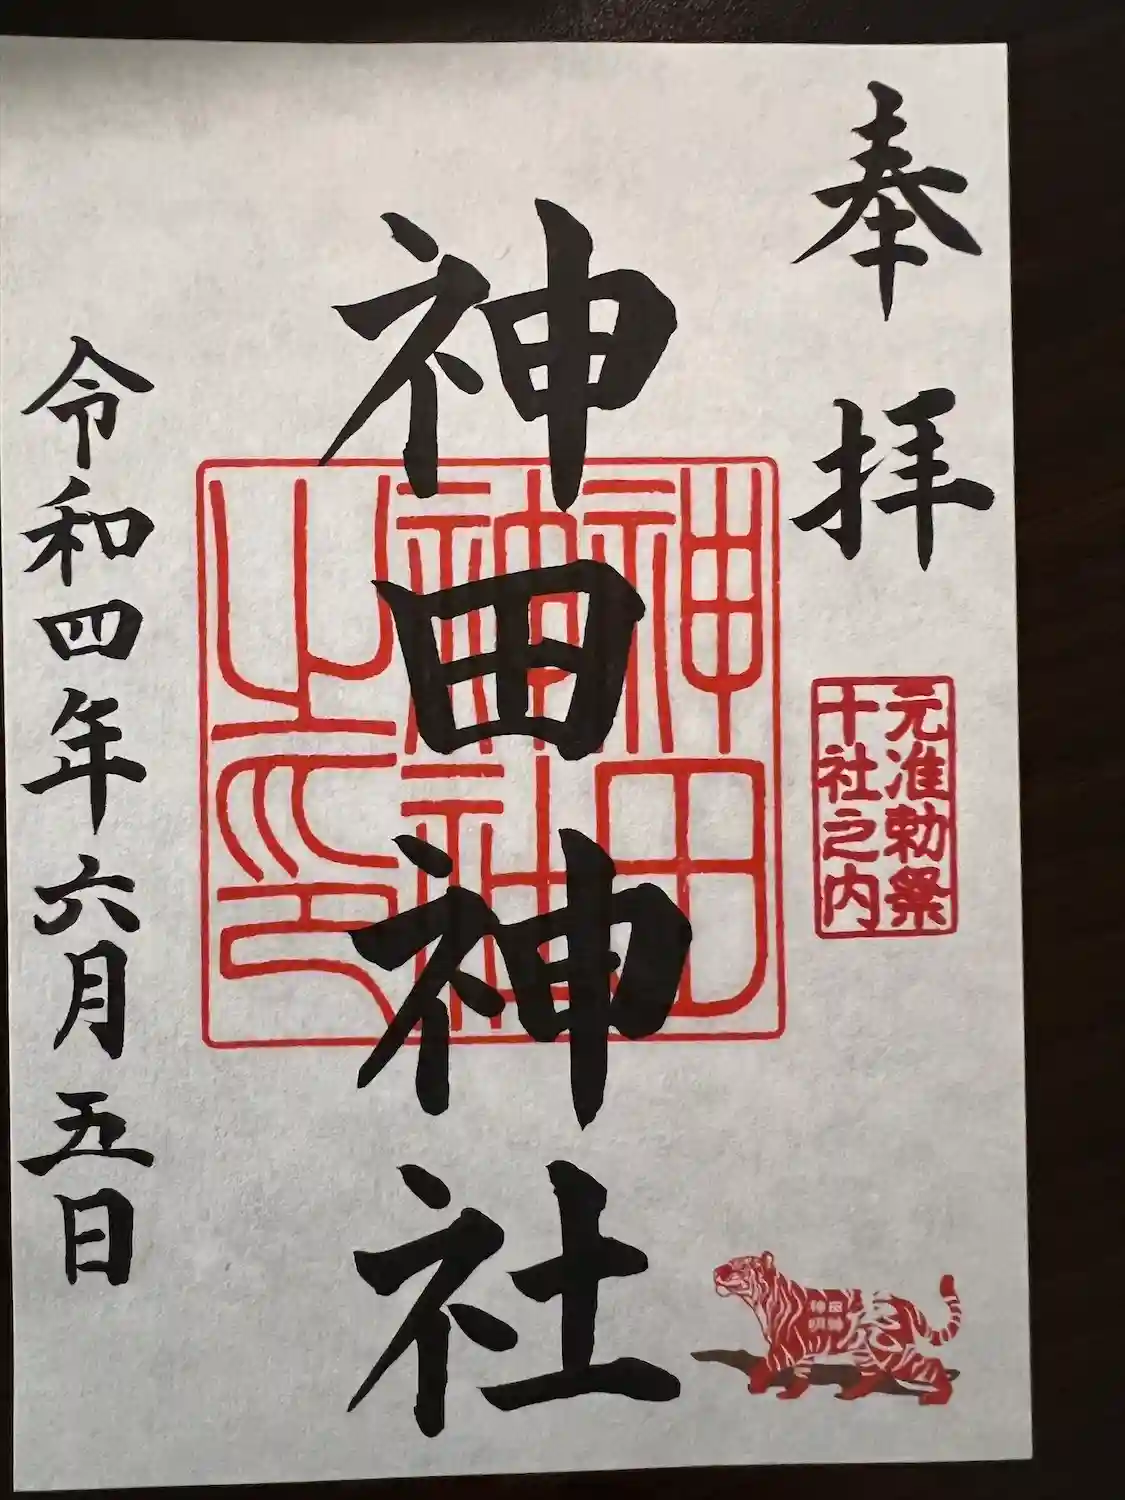 奉拝
元准勅祭
十社之内
神田神社
神田神社之印
令和四年六月五日